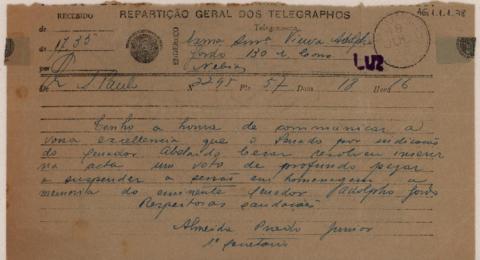 AG1.1.1.78
RECEBIDO
REPARTIÇÃO GERAL DOS TELEGRAPHOS
Telegramma
de
17.35
ENDEREÇO
Vieira Adolpho
Gordo 130
LUZ
por
De S Paulo Nº 2295 Pls 57 Data 18 Hora 16
Tenho a honra de communicar a
vossa excellencia que o Senado por indicação
do Senador Abelardo Cesar resolveu inserir
na acta um voto de profundo pezar
e suspender a sessão em homenagem a
memoria do eminente Senador Adolpho Gordo
Respeitosas saudações
Almeida Prado Junior
1º secretario